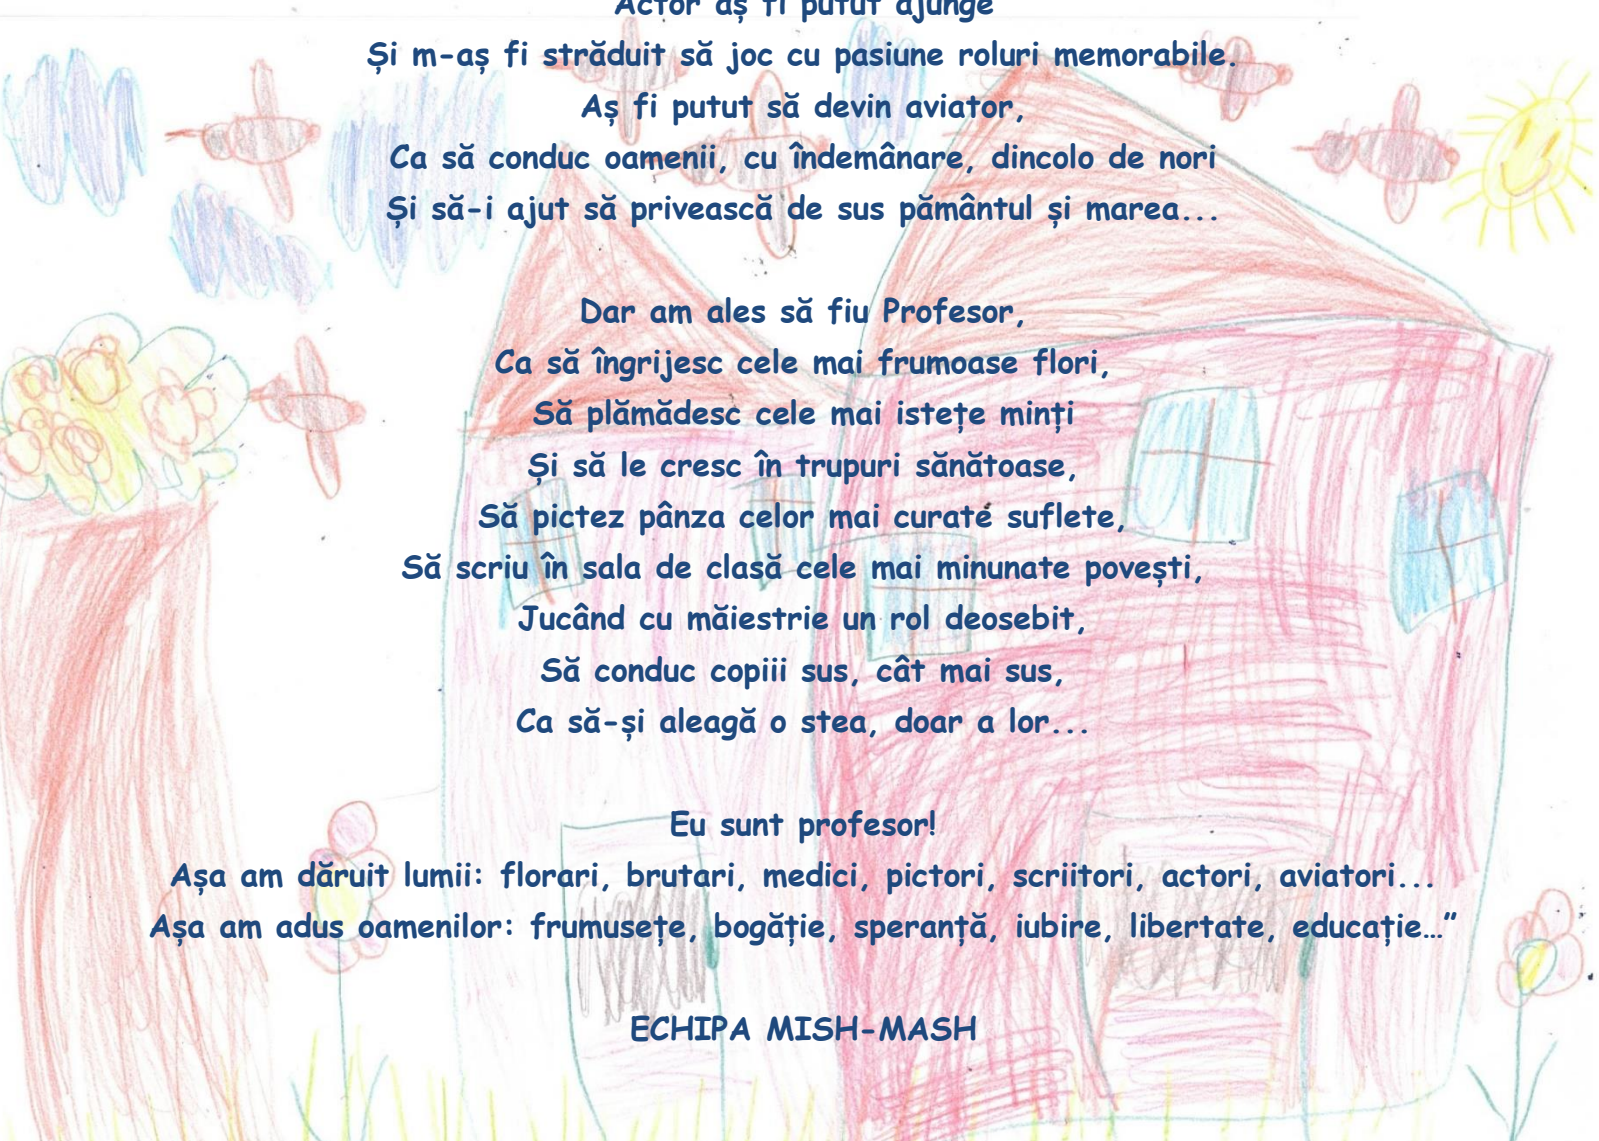 Actor aș fi putut ajunge
Și m-aș fi străduit să joc cu pasiune roluri memorabile.
Aș fi putut să devin aviator,
Ca să conduc oamenii, cu îndemânare, dincolo de nori
Și să-i ajut să privească de sus pământul și marea...
Dar am ales să fiu Profesor,
Ca să îngrijesc cele mai frumoase flori,
Să plămădesc cele mai istețe minți
Și să le cresc în trupuri sănătoase,
Să pictez pânza celor mai curate suflete,
Să scriu în sala de clasă cele mai minunate povești,
Jucând cu măiestrie un rol deosebit,
Să conduc copiii sus, cât mai sus,
Ca să-și aleagă o stea, doar a lor...
Eu sunt profesor!
Așa am dăruit lumii: florari, brutari, medici, pictori, scriitori, actori, aviatori...
Așa am adus oamenilor: frumusețe, bogăție, speranță, iubire, libertate, educație…”
ECHIPA MISH-MASH